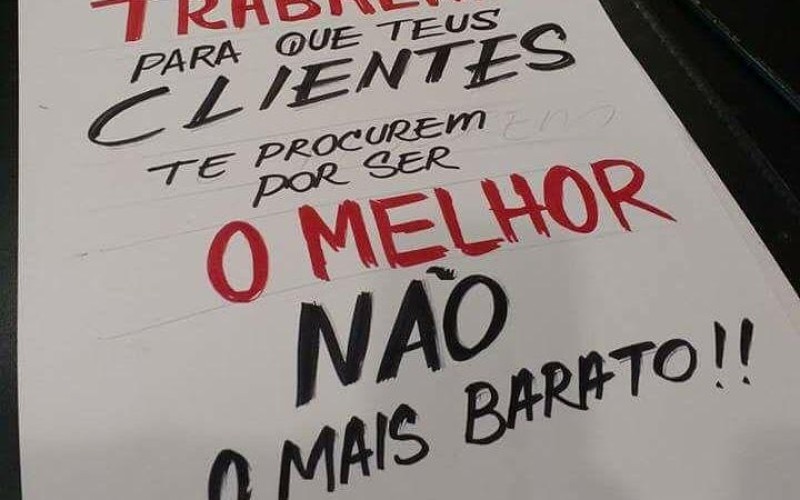 TRABALHE
PARA QUE TEUS
CLIENTES
TE PROCUREM
POR SER
O MELHOR
NÃO
O MAIS BARATO!!